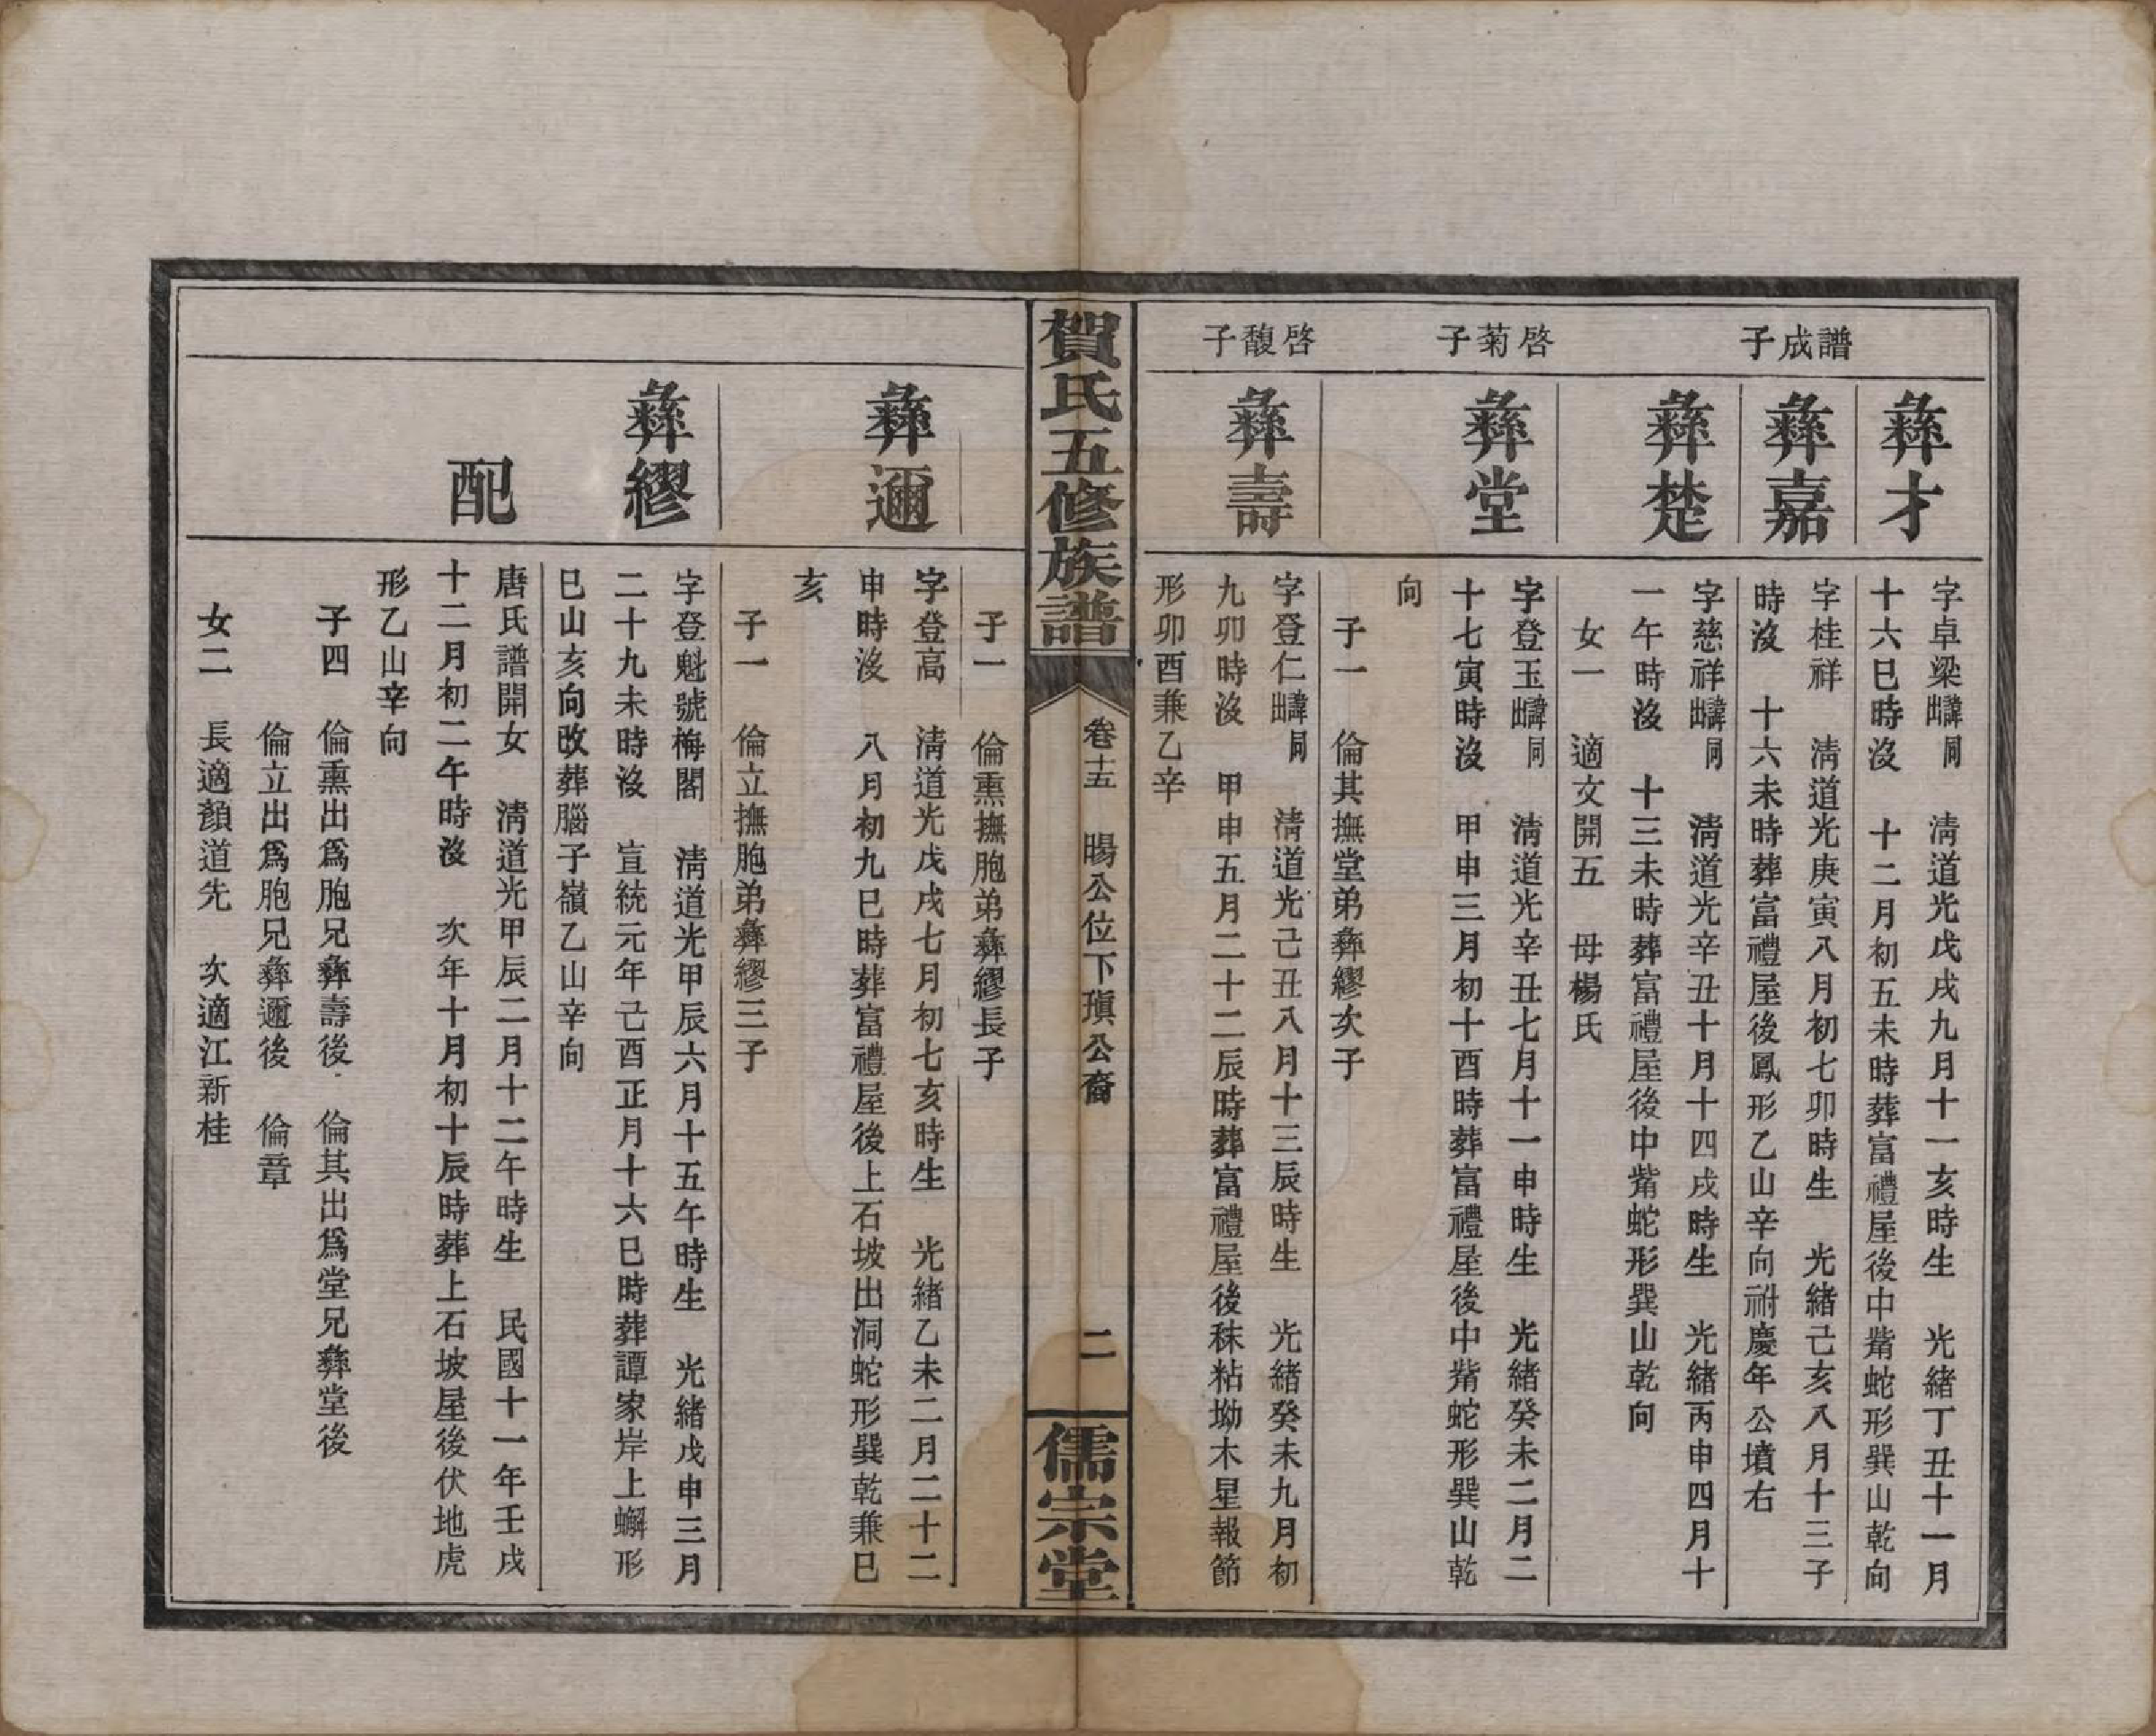 譜成子
彝才
字卓梁譜同出 清道光戊戌九月十一亥時生 光緒丁丑十一月
十六巳時沒 十二月初五未時葬富禮屋後中觜蛇形巽山乾向
彝嘉
字桂祥 清道光庚寅八月初七卯時生 光緒己亥八月十三子
時沒 十六未時葬富禮屋後鳳形乙山辛向祔慶年公墳右
彝楚
字慈祥譜同出 清道光辛丑十月十四戌時生 光緒丙申四月十
一午時沒 十三未時葬富禮屋後中觜蛇形巽山乾向
女一 適文開五 母楊氏
啓菊子
彝堂
字登玉譜同出 清道光辛丑七月十一申時生 光緒癸未二月二
十七寅時沒 甲申三月初十酉時葬富禮屋後中觜蛇形巽山乾
向
子一 倫其撫堂弟彝繆次子
啓馥子
彝壽
字登仁譜同出 清道光己丑八月十三辰時生 光緒癸未九月初
九卯時沒 甲申五月二十二辰時葬富禮屋後秣粘坳木星報節
形卯酉兼乙辛
賀氏五修族譜 卷十五 暘公位下瑱公裔 二 儒宗堂
子一 倫熏撫胞弟彝繆長子
彝邇
字登高 清道光戊戌七月初七亥時生 光緒乙未二月二十二
申時沒 八月初九巳時葬富禮屋後上石坡出洞蛇形巽乾兼巳
亥
子一 倫立撫胞弟彝繆三子
彝繆
字登魁號梅閣 清道光甲辰六月十五午時生 光緒戊申三月
二十九未時沒 宣統元年己酉正月十六巳時葬譚家岸上蠏形
巳山亥向改葬腦子嶺乙山辛向
配
唐氏譜開女 清道光甲辰二月十二午時生 民國十一年壬戌
十二月初二午時沒 次年十月初十辰時葬上石坡屋後伏地虎
形乙山辛向
子四 倫熏出爲胞兄彝壽後 倫其出爲堂兄彝堂後
倫立出爲胞兄彝邇後 倫章
女二 長適顏道先 次適江新桂